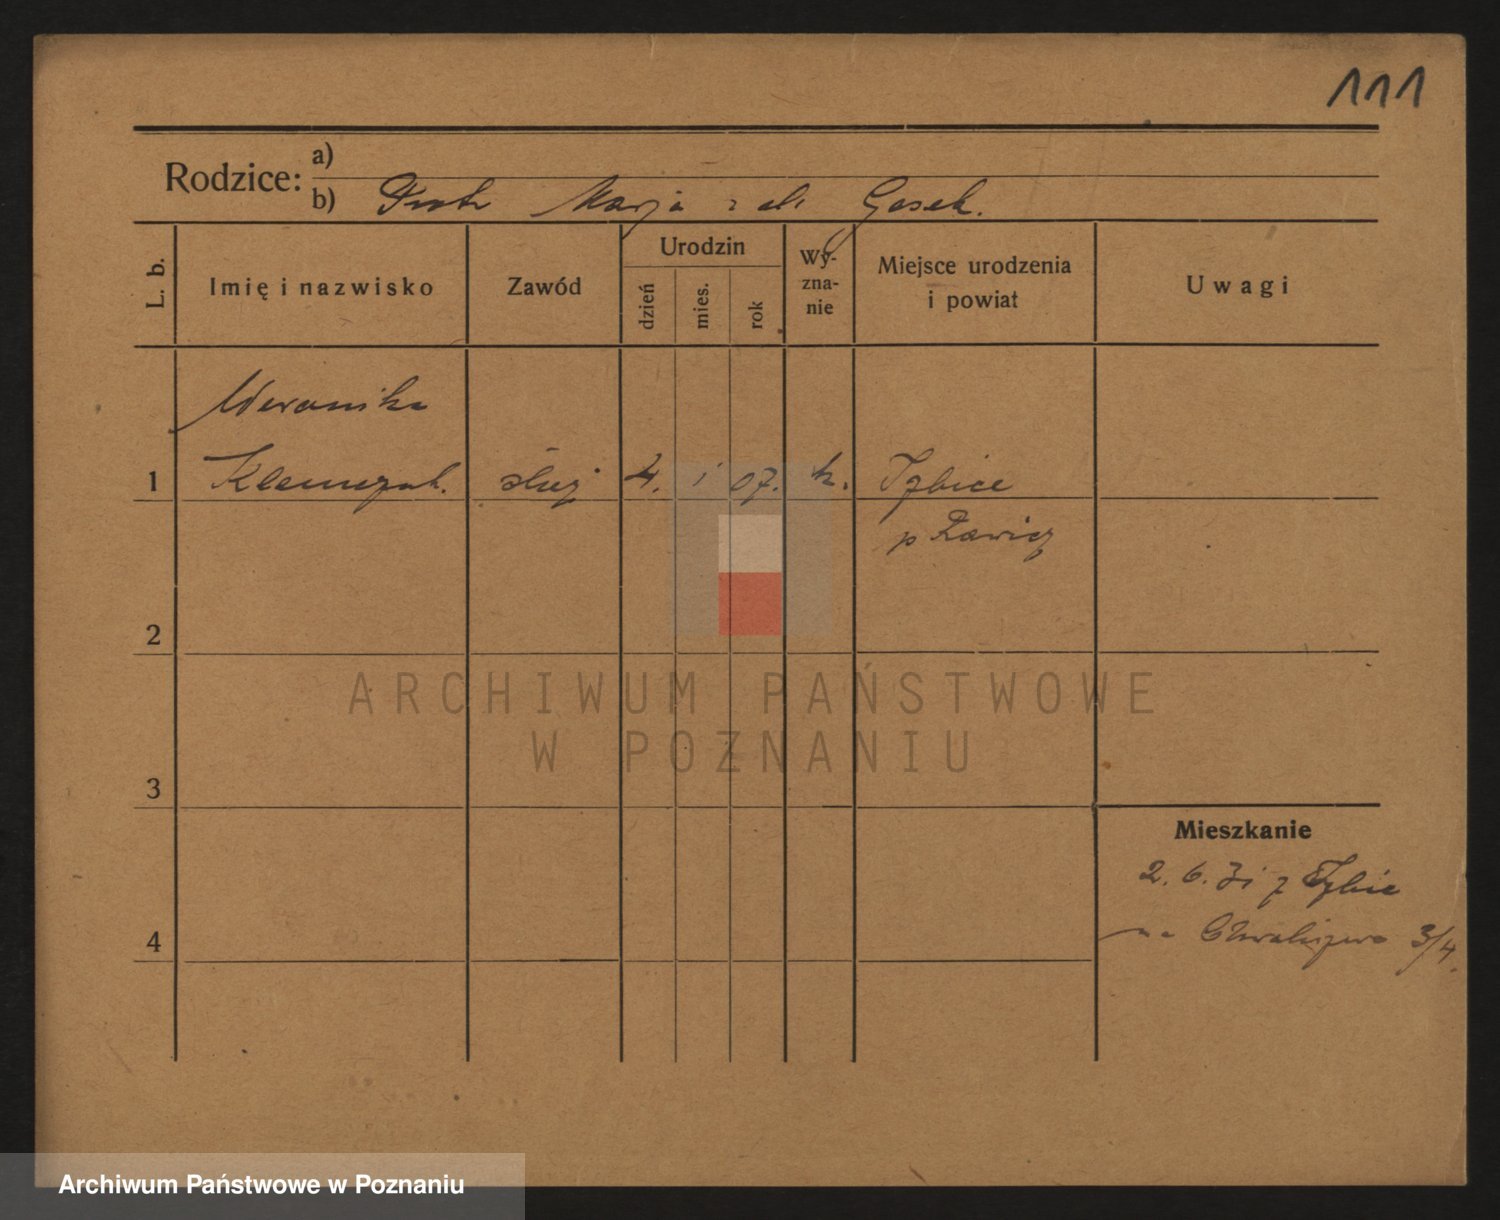 111
Rodzice:
a)
b) Piotr Marja z d. Gasek.
L. b.
Imię i nazwisko
Zawód
Urodzin
dzień
mies.
rok
Wy-
zna-
nie
Miejsce urodzenia
i powiat
Uwagi
Weronika
1 Klemczak. służ 4. 1 07. k. Izbice
p Rawicz
2
3
4
Mieszkanie
2. 6. 31 z Izbic
na Chwaliszewo 3/4.
ARCHIWUM PAŃSTWOWE
W POZNANIU
Archiwum Państwowe w Poznaniu